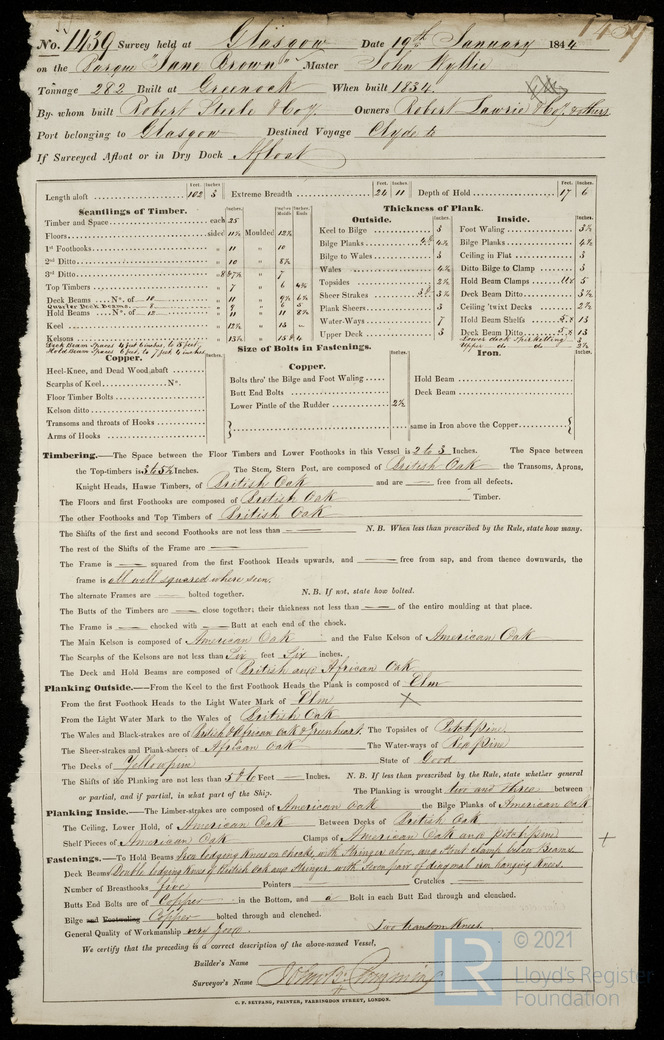 No. 1439 Survey held at Glasgow Date 19th January 1844
1439
on the Barque "Jane Brown" Master John Wyllie
Tonnage 282 Built at Greenock When built 1834.
By whom built Robert Steele & Coy. Owners Robert Lawrie & Coy. & others
Port belonging to Glasgow Destined Voyage Clyde to
If Surveyed Afloat or in Dry Dock Afloat
Feet. Inches Feet. Inches Feet. Inches.
Length aloft 102 3 Extreme Breadth 24 11 Depth of Hold 17 6
Scantlings of Timber.
Timber and Space each 25
Floors sided 11½ Moulded 12½
1st Foothooks " 11 " 10
2nd Ditto " 10 " 8½
3rd Ditto " 8 & 7½ " 7
Top Timbers " 7 " 6 4½
Deck Beams No. of 10 " 11 " 9½ 6½
Quarter Deck Beams 8 " 9 6 5
Hold Beams No. of 12 " 11 " 11 8½
Keel " 12½ " 13
Kelsons " 13½ " 15 & 4
Deck Beam Spaces 4 feet 6 inches, to 5 feet
Hold Beam Spaces 6 feet, to 7 feet 4 inches
Thickness of Plank.
Outside.
Keel to Bilge 3
Bilge Planks 4 & 4½
Bilge to Wales 3
Wales 4½
Topsides 2½
Sheer Strakes 3 & 3½
Plank Sheers 3
Water-Ways 7
Upper Deck 3
Inside.
Foot Waling 3½
Bilge Planks 4½
Ceiling in Flat 3
Ditto Bilge to Clamp 3
Hold Beam Clamps 5
Deck Beam Ditto 3½
Ceiling 'twixt Decks 2½
Hold Beam Shelfs 5 x 13
Deck Beam Ditto 5 x 13
Lower deck Spirketting 3
Upper do do 2½
Size of Bolts in Fastenings.
Copper.
Heel-Knee, and Dead Wood abaft
Scarphs of Keel No.
Floor Timber Bolts
Kelson ditto
Transoms and throats of Hooks
Arms of Hooks
Copper.
Bolts thro' the Bilge and Foot Waling
Butt End Bolts
Lower Pintle of the Rudder 2½
Iron.
Hold Beam
Deck Beam
same in Iron above the Copper
Timbering.—The Space between the Floor Timbers and Lower Foothooks in this Vessel is 2 to 3 Inches. The Space between
the Top-timbers is 3 to 5½ Inches. The Stem, Stern Post, are composed of British Oak the Transoms, Aprons,
Knight Heads, Hawse Timbers, of British Oak and are — free from all defects.
The Floors and first Foothooks are composed of British Oak Timber.
The other Foothooks and Top Timbers of British Oak
The Shifts of the first and second Foothooks are not less than — N. B. When less than prescribed by the Rule, state how many.
The rest of the Shifts of the Frame are —
The Frame is — squared from the first Foothook Heads upwards, and — free from sap, and from thence downwards, the
frame is all well squared where seen.
The alternate Frames are — bolted together. N. B. If not, state how bolted.
The Butts of the Timbers are — close together; their thickness not less than — of the entire moulding at that place.
The Frame is — chocked with — Butt at each end of the chock.
The Main Kelson is composed of American Oak and the False Kelson of American Oak
The Scarphs of the Kelsons are not less than Six feet Six inches.
The Deck and Hold Beams are composed of British and African Oak
Planking Outside.—From the Keel to the first Foothook Heads the Plank is composed of Elm
From the first Foothook Heads to the Light Water Mark of Elm ×
From the Light Water Mark to the Wales of British Oak
The Wales and Black-strakes are of British & African Oak & Greenheart. The Topsides of Pitchpine.
The Sheer-strakes and Plank-sheers of African Oak The Water-ways of Red Pine
The Decks of Yellowpine State of Good
The Shifts of the Planking are not less than 5 & 6 Feet — Inches. N. B. If less than prescribed by the Rule, state whether general
or partial, and if partial, in what part of the Ship. The Planking is wrought two and three between
Planking Inside.—The Limber-strakes are composed of American Oak the Bilge Planks of American Oak
The Ceiling, Lower Hold, of American Oak Between Decks of British Oak
Shelf Pieces of American Oak Clamps of American Oak and pitchpine +
Fastenings.—To Hold Beams Iron lodging Knees on chocks, with Stringer above, and Stout clamp below Beams.
Deck Beams Double lodging Knees of British Oak and Stringer, with Seven pair of diagonal iron hanging Knees.
Number of Breasthooks five Pointers — Crutches —
Butts End Bolts are of Copper in the Bottom, and a Bolt in each Butt End through and clenched.
Bilge and Footwaling Copper bolted through and clenched.
General Quality of Workmanship very good Two transom Knees.
We certify that the preceding is a correct description of the above-named Vessel,
Builder's Name
Surveyor's Name
C. F. SEYFANG, PRINTER, FARRINGDON STREET, LONDON.
LR © 2021
Lloyd's Register
Foundation